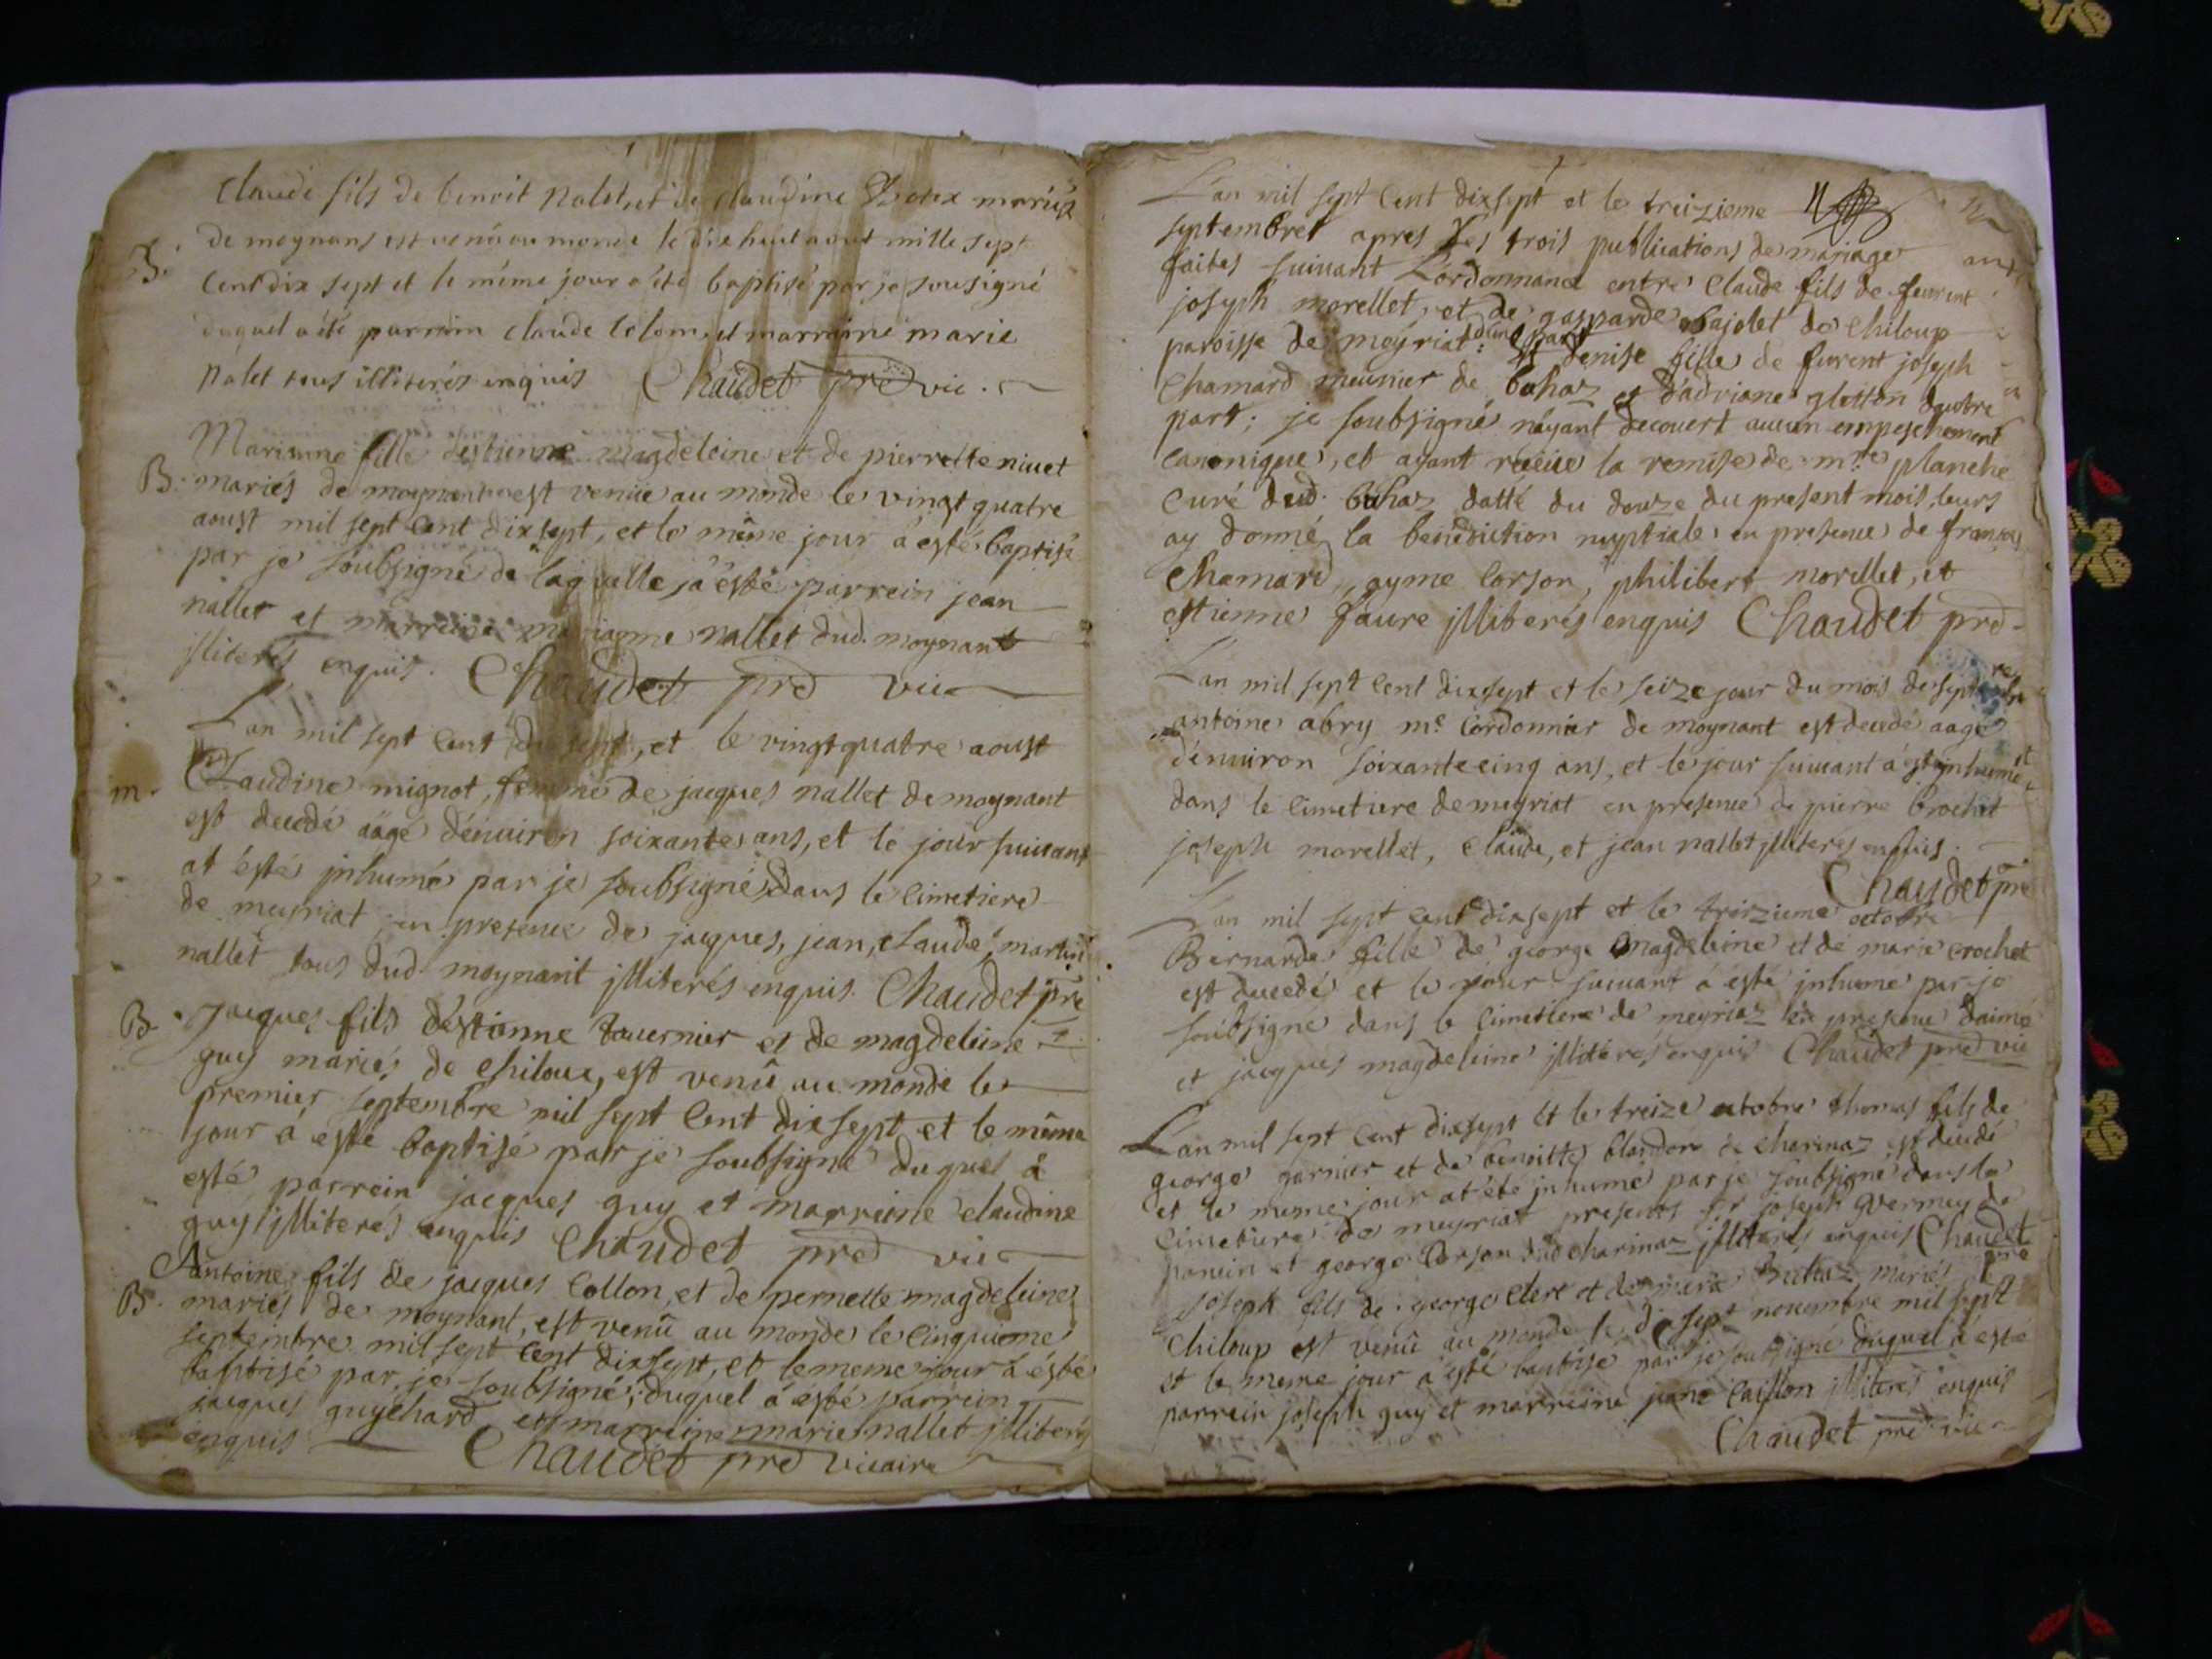 Claude fils de benoit Nalet, et de claudine mariéz
B. de moynans est venu au monde le dixhuit aout mille sept
Cent dix sept et le méme jour a été baptisé par je sousigné
duquel a été parrein claude Colom et marreine marie
Nalet tous illiterés enquis Chaudet pre vic.
Marianne fille destienne magdeleine et de pierrette niuet
B. mariés de moynant est venüe au monde le vingt quatre
aoust mil sept cent dixsept, et le même jour á esté baptisé
par je soubsigné de laquelle já esté parrein jean
nallet et marreine marianne nallet dud. moynant
jlliterés enquis. Chaudet pre vic
Lan mil sept cent dix sept, et le vingt quatre aoust
m. Claudine mignot, femme de jacques nallet de moynant
est decedé aagé dénuiron soixante ans, et le jour suiuant
at ésté jnhumé par je soubsigné dans le cimetiere
de meyriat, en presence de jacques, jean, claude, martin
nallet tous dud. moynant jlliterés enquis. Chaudet pre
B. Jacques fils déstienne tauernier et de magdeleine
guy mariés de chiloux, est venû au monde le
premier septembre mil sept cent dixsept et le même
jour á esté baptisé par je soubsigné duquel á
esté parrein jacques guy et marreine claudine
guy jlliterés enquis Chaudet pre vic
Antoine fils de jacques Collon, et de pernette magdeleine
B. mariés de moynant, est venû au monde le cinquieme
septembre mil sept cent dixsept, et le meme jour á ésté
baptisé par je soubsigné, duquel á esté parrein
jacques guychard et marreine marie nallet jlliterés
enquis Chaudet pre vicaire
Lan mil sept cent dixsept et le treizieme
septembre apres les trois publications de mariage
faites suiuant L'ordonnance entre Claude fils de feurent
joseph morellet, et de gasparde bajolet de chiloup
paroisse de meyriat dune part: et denise fille de furent joseph
chamard meunier de bohaz et d'adriane gletton dautre
part: je soubsigné n'ayant decouert aucun empeschement
canonique, et ayant receüe la remise de mre planche
curé dud. bohaz datté du douze du present mois, leurs
ay donné la benediction nuptiale en presence de francois
Chamard, ayme Corson, philibert morellet, et
estienne faure jlliterés enquis Chaudet pre
Lan mil sept cent dixsept et le seize jour du mois de septembre
antoine abry me cordonnier de moynant est decedé aagé
dénuiron soixantecinq ans, et le jour suiuant á esté jnhumé
dans le cimetiere de meyriat en presence de pierre brochet
joseph morellet, claude, et jean nallet jlliterés enquis.
Chaudet pre
Lan mil sept cent dixsept et le treizieme octobre
Bernarde fille de george magdeleine et de marie crochet
est decedé et le jour suiuant á esté jnhumé par je
soubsigné dans le cimetiere de meyriaz en presence daimé
et jacques magdeleine jlliterés enquis Chaudet pre vic
Lan mil sept cent dixsept et le treize octobre thomas fils de
george garnier et de benoitte blandon de charinaz est decedé
et le meme jour at été jnhumé par je soubsigné dans le
cimetiere de meyriat presents sr joseph
parrein et george Corson dud charinaz jlliterés enquis Chaudet
pre
joseph fils de george clerc et de marie Buhaz mariés de
chiloup est venû au monde le dixsept nouembre mil sept
et le meme jour á esté baptisé par je soubsigné duquel á esté
parrein joseph guy et marreine jane caillon jlliterés enquis
Chaudet pre vic